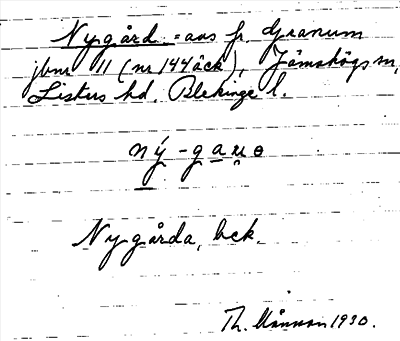 Nygård = avs fr. Granum
jbnr 11 (nr 144 åck), Jämshögs sn,
Listers hd. Blekinge l.
ný - gaụə
Nygårda, bek.
Th. Månsson 1930.